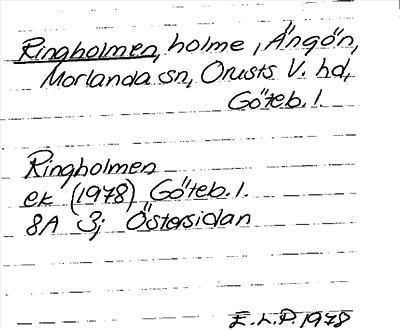 Ringholmen, holme, Ängön,
Morlanda sn, Orusts V. hd,
Göteb. l.
Ringholmen
ek (1978) Göteb. l.
8A 3j Östersidan
E.L.P 1978